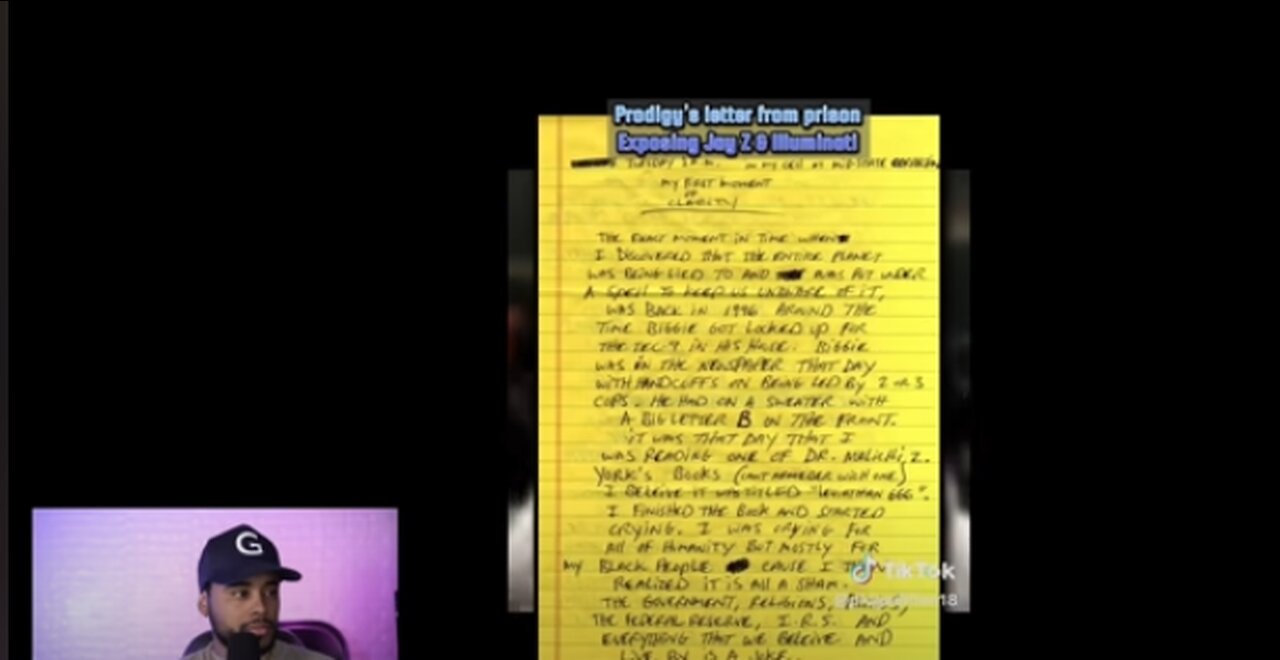 Prodigy's letter from prison
Exposing Jay Z & Illuminati
TUESDAY IN MY CELL AT MID STATE
MY FIRST MOMENT
OF
CLARITY
THE EXACT MOMENT IN TIME WHEN
I DISCOVERED THAT THE ENTIRE PLANET
WAS BEING LIED TO AND WAS PUT UNDER
A SPELL TO KEEP US UNAWARE OF IT,
WAS BACK IN 1996 AROUND THE
TIME BIGGIE GOT LOCKED UP FOR
THE TEC-9 IN HIS HOUSE. BIGGIE
WAS IN THE NEWSPAPER THAT DAY
WITH HANDCUFFS ON BEING LED BY 2 OR 3
COPS. HE HAD ON A SWEATER WITH
A BIG LETTER B ON THE FRONT.
IT WAS THAT DAY THAT I
WAS READING ONE OF DR. MALICHI Z.
YORK'S BOOKS (CANT REMEBER WICH ONE)
I BELEIVE IT WAS TITLED "LEVIATHAN 666".
I FINISHED THE BOOK AND STARTED
CRYING. I WAS CRYING FOR
ALL OF HUMANITY BUT MOSTLY FOR
MY BLACK PEOPLE CAUSE I THEN
REALIZED IT IS ALL A SHAM.
THE GOVERNMENT, RELIGIONS,
THE FEDERAL RESERVE, I.R.S. AND
EVERYTHING THAT WE BELEIVE AND
LIVE BY IS A JOKE.
TikTok
G